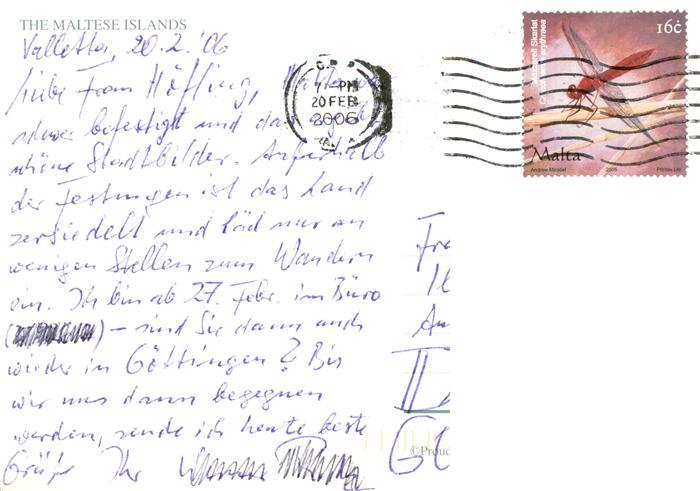 THE MALTESE ISLANDS
Valletta, 20.2.'06
Liebe Frau Höfling,
schwer befestigt und
schöne Stadtbilder. Außerhalb
der Festungen ist das Land
zersiedelt und läd nur an
wenigen Stellen zum Wandern
ein. Ich bin ab 27. Febr. im Büro
( ) – sind Sie dann auch
wieder in Göttingen? Bis
wir uns dann begegnen
werden, sende ich heute beste
Grüße Ihr
7 - PM
20 FEB
2006
Malta
16c
Andrew Micallef
2005
Printex Ltd
Fra
An
D
©Proud